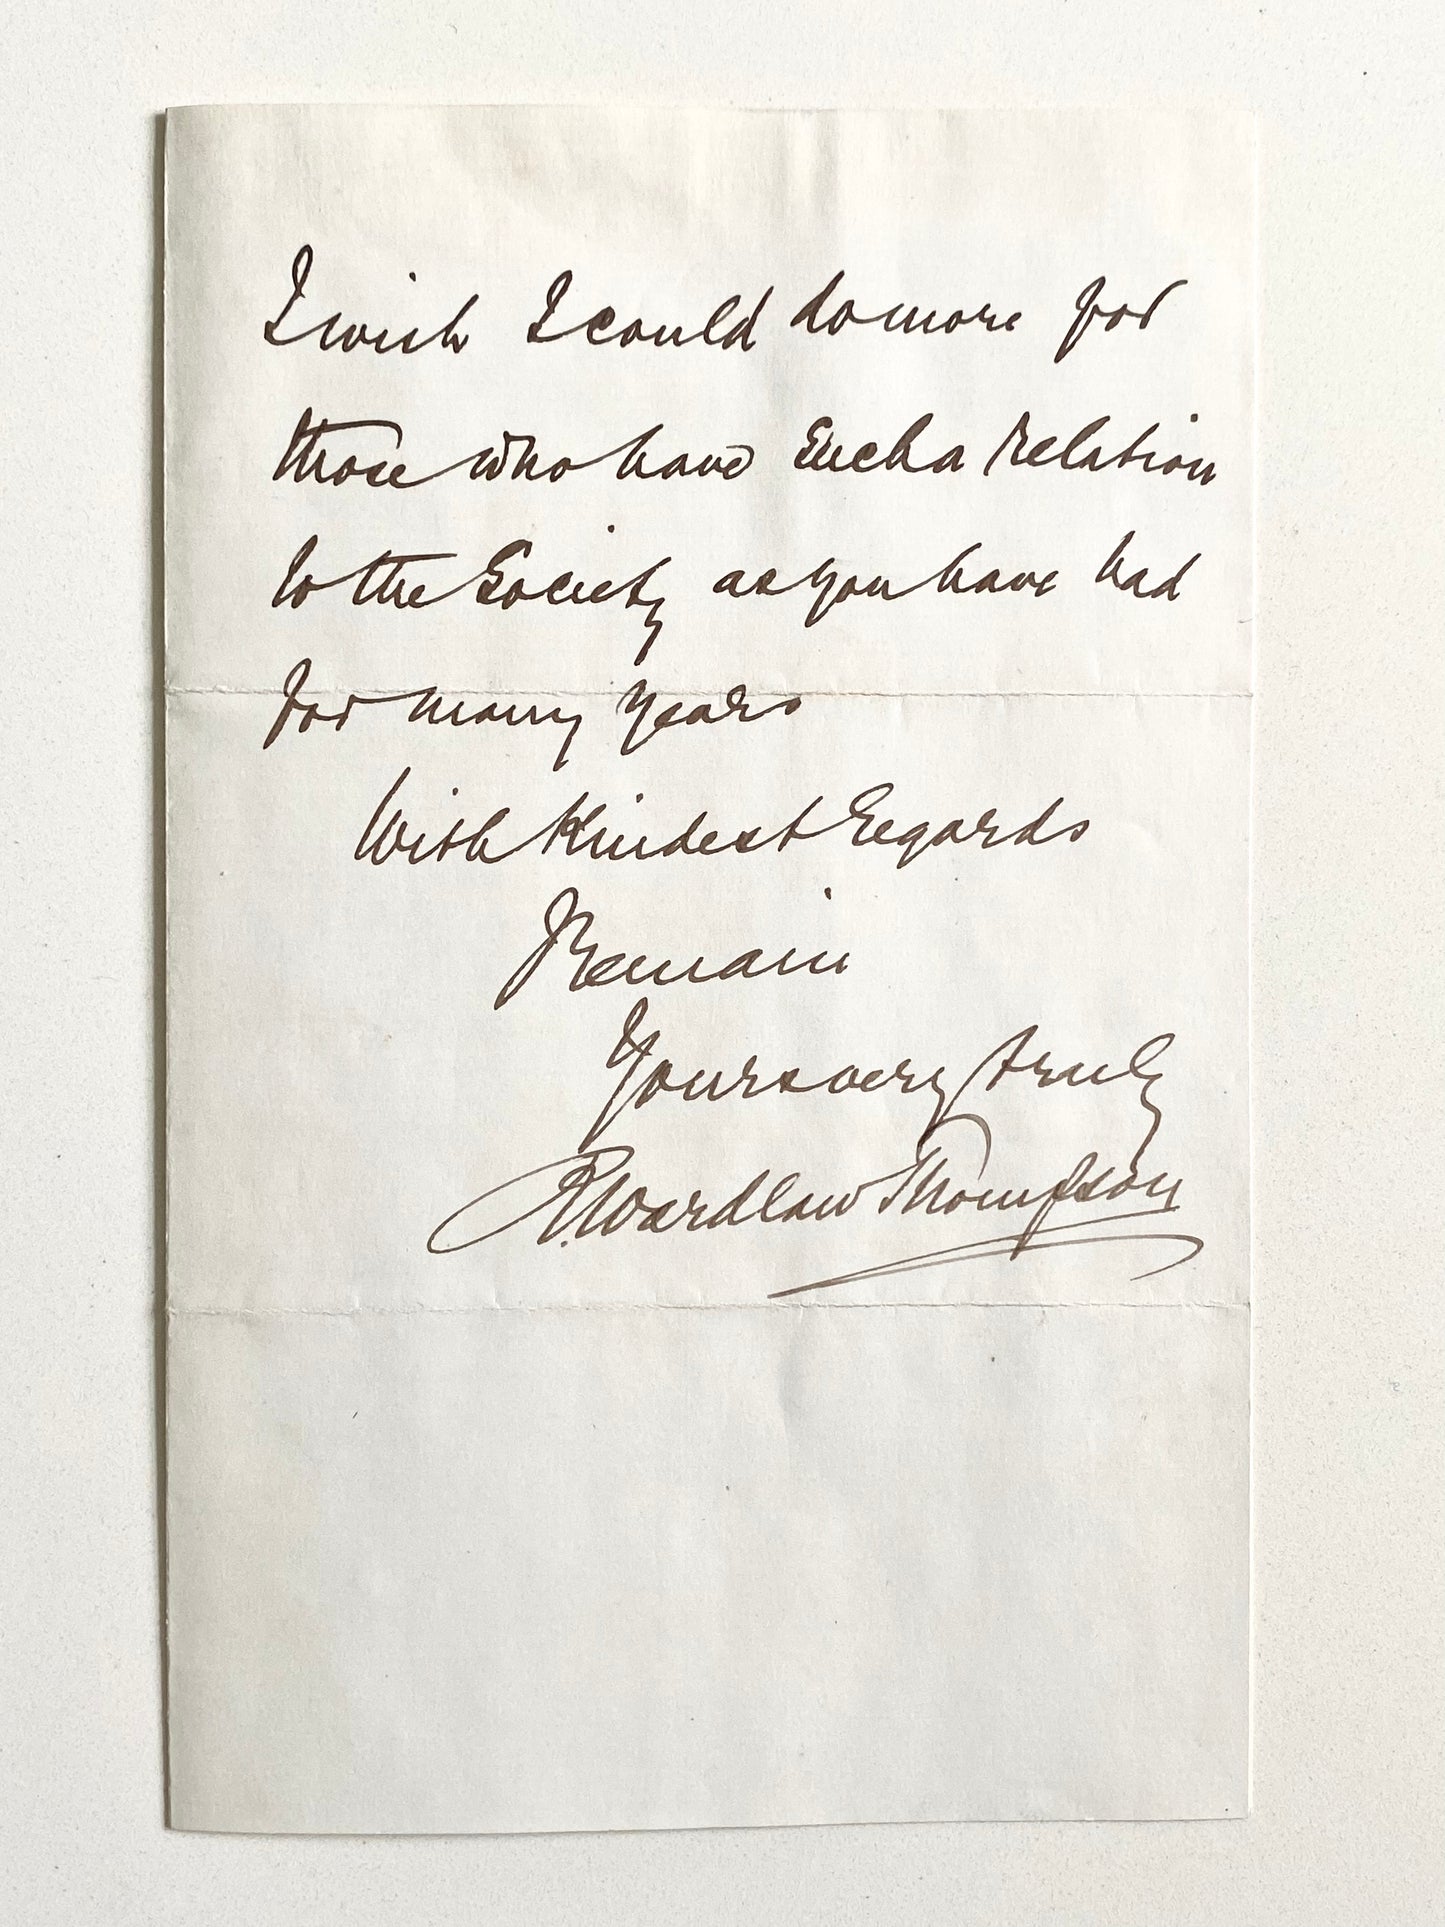 I wish I could do more for
those who have such a relation
to the Society as you have had
for many years
With Kindest Regards
Remain
Yours very truly
R. Wardlaw Thompson